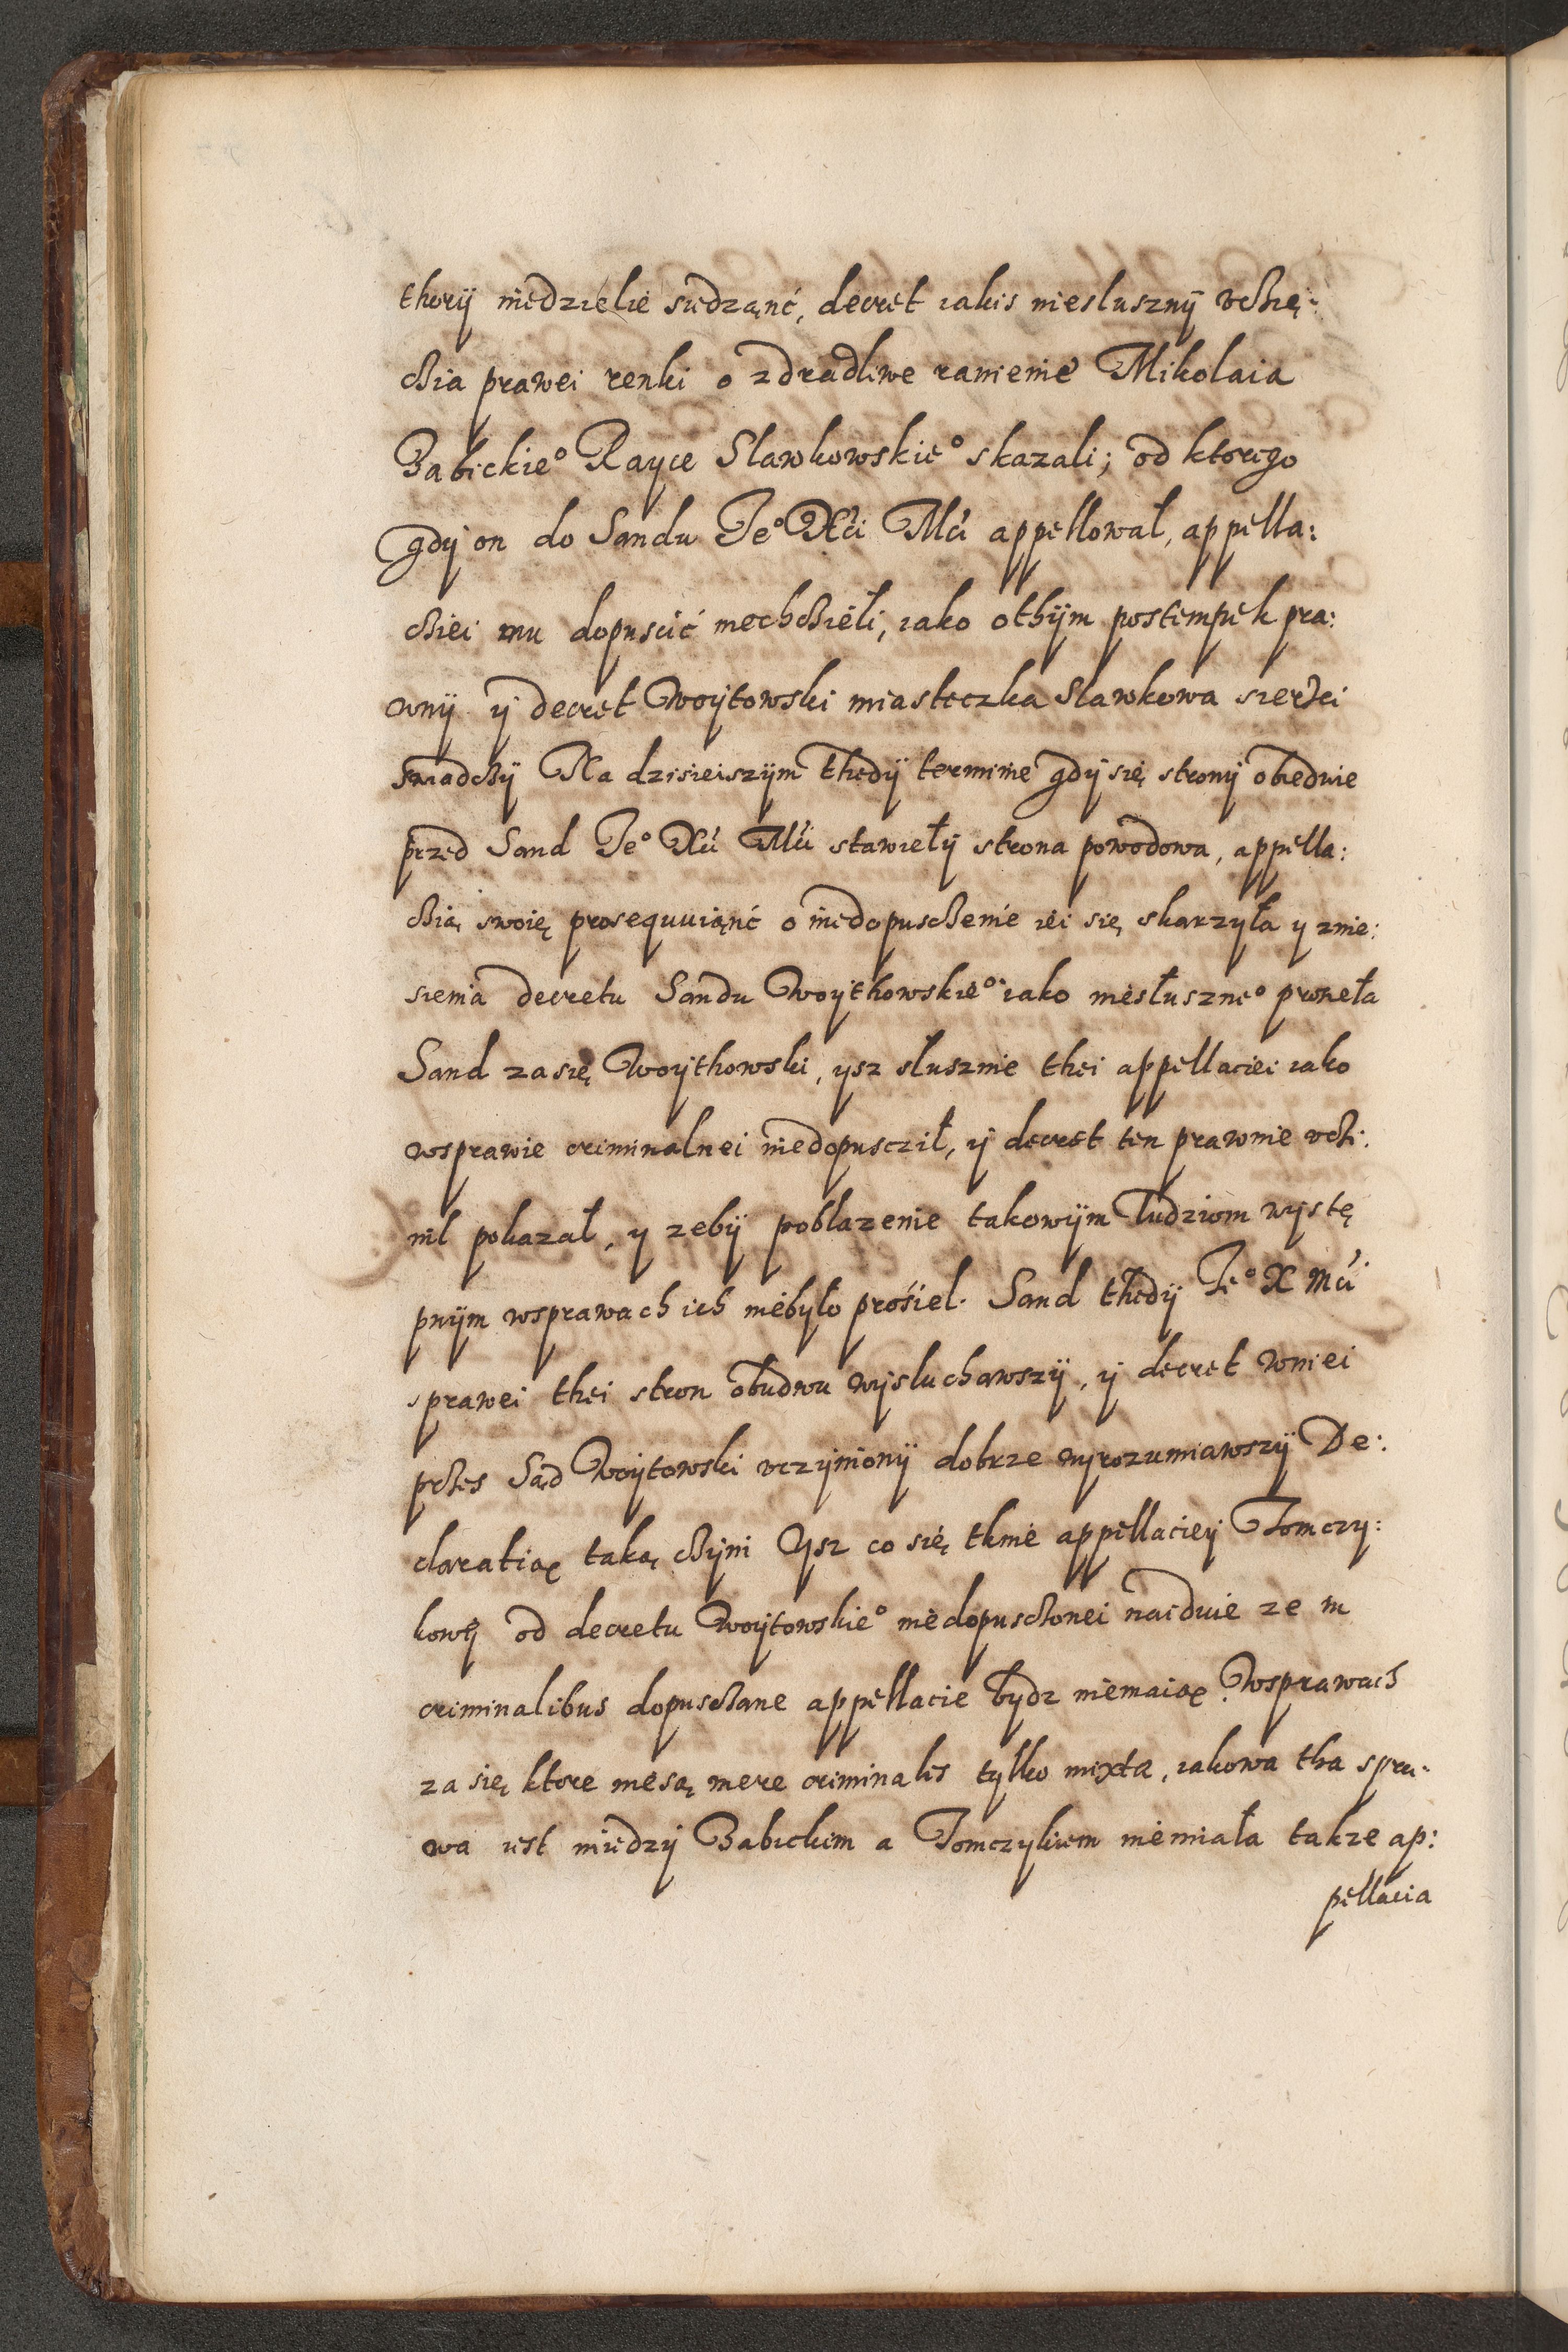 thorÿ niedzielie siedząnć, decret iakis niesluszny vchię:
chia prawei renki o zdradliwe ranienie Mikolaia
Babickie° Rayce Slawkowskie° skazali; od ktorego
gdÿ on do Sandu Je° Xći Mći appellował, appella:
chiei mu dopuscić niechchieli, iako othÿm postempek pra:
wnÿ ÿ decret Woÿtowski miasteczka Slawkowa sierzei
swiadchÿ Na dzisieiszÿm thedÿ terminie gdÿ się stronÿ obiedwie
przed Sand Je° Xći Mći stawiełÿ strona powodowa, appella:
chią swoię prosequuiąnć o niedopuschenie iei się skarzyła y znie:
sienia decretu Sandu Woÿthowskie° iako niesłuszne° proneła
Sand zasię Woÿthowski, ysz slusznie thei appellaciei iako
wsprawie criminalnei niedopuscził, ÿ decret ten prawnie vchi:
nił pokazał, y zebÿ poblazenie takowÿm ludziom wystę
pnÿm wsprawach ich niebyło prosiel. Sand thedÿ Je° X Mći
sprawei thei stron obudwu wÿsluchawszÿ, ÿ decret wniei
pches Sąd Woÿtowski vczÿnionÿ dobrze wyrozumiawszÿ De:
claratią taką chÿni Ysz co się tknie appellacieÿ Tomczy:
kowÿ od decretu Woÿtowskie° niedopuschonei naiduie ze in
criminalibus dopuschane appellacie bydz niemaią. Wsprawach
za się ktore niesą mere criminales tylko mixtæ, iakowa tha spra:
wa iest miedzÿ Babickim a Tomczykiem niemiała takze ap:
pellacia